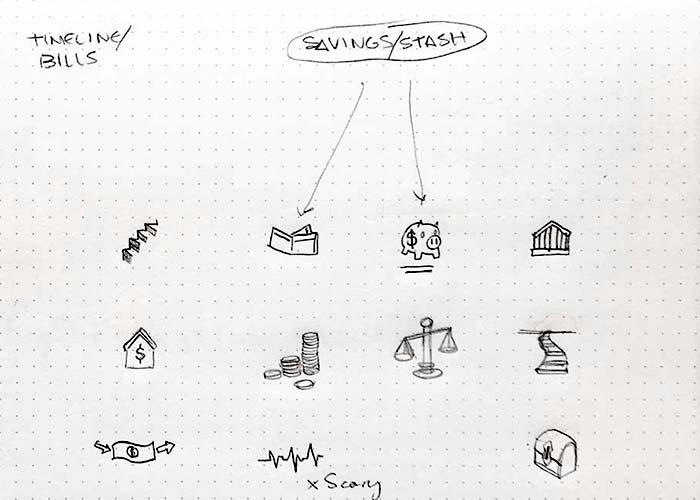 TIMELINE/
BILLS
SAVINGS/STASH
$
$
x Scary